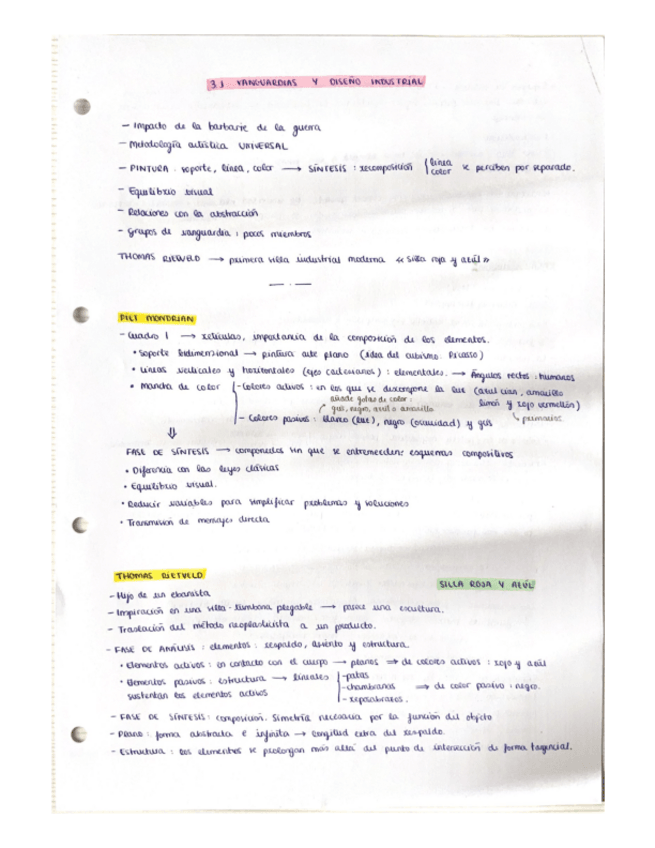 3.1 VANGUARDIAS Y DISEÑO INDUSTRIAL
- Impacto de la barbarie de la guerra
- Metodología artística UNIVERSAL
- PINTURA: soporte, línea, color → SÍNTESIS: recomposición { línea color se perciben por separado.
- Equilibrio visual
- Relaciones con la abstracción
- Grupos de vanguardia: pocos miembros
THOMAS RIETVELD → primera silla industrial moderna « silla roja y azul »
PIET MONDRIAN
- Cuadro 1 → retículas, importancia de la composición de los elementos.
• Soporte bidimensional → pintura arte plano (idea del cubismo: Picasso)
• Líneas verticales y horizontales (ejes cartesianos): elementales. → Ángulos rectos: humanos
• Mancha de color
- Colores activos: en los que se descompone la luz (azul cian, amarillo
limón y rojo vermellón)
↳ primarios
añade gotas de color:
gris, negro, azul o amarillo
- Colores pasivos: blanco (luz), negro (oscuridad) y gris
⇓
FASE DE SÍNTESIS → componerlos sin que se entremezclen: esquemas compositivos
• Diferencia con las leyes clásicas
• Equilibrio visual.
• Reducir variables para simplificar problemas y soluciones
• Transmisión de mensajes directa
THOMAS RIETVELD
SILLA ROJA Y AZÚL
- Hijo de un ebanista
- Inspiración en una silla-tumbona plegable → parece una escultura.
- Traslación del método neoplasticista a un producto.
- FASE DE ANÁLISIS: elementos: respaldo, asiento y estructura
• Elementos activos: en contacto con el cuerpo → planos ⇒ de colores activos: rojo y azul
• Elementos pasivos: estructura → lineales
sustentan los elementos activos
- patas
- chambranas ⇒ de color pasivo: negro.
- reposabrazos.
- FASE DE SÍNTESIS: composición. Simetría necesaria por la función del objeto
- PLANO: forma abstracta e infinita → longitud extra del respaldo.
- Estructura: los elementos se prolongan más allá del punto de intersección de forma tangencial.